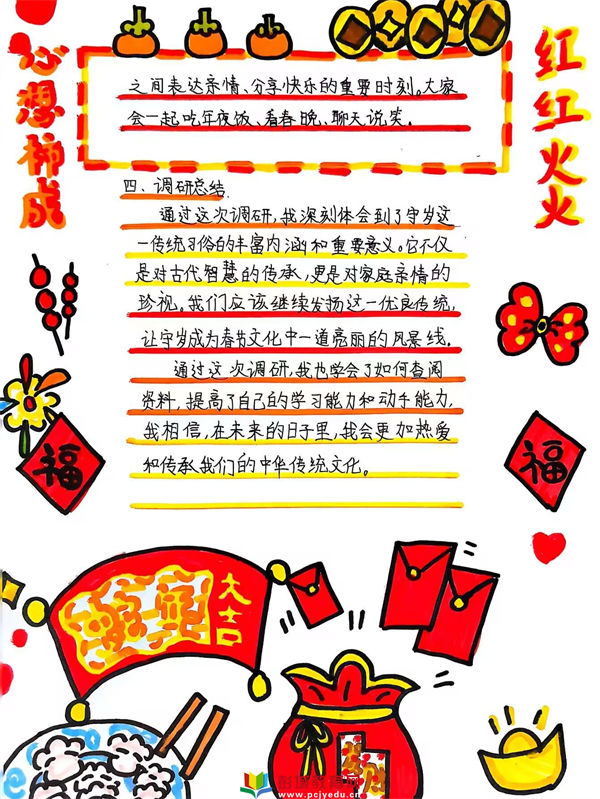 心想柿成
红红火火
之间表达亲情、分享快乐的重要时刻。大家
会一起吃年夜饭、看春晚、聊天说笑。
四、调研总结
通过这次调研，我深刻体会到了守岁这
一传统习俗的丰富内涵和重要意义。它不仅
是对古代智慧的传承，更是对家庭亲情的
珍视。我们应该继续发扬这一优良传统，
让守岁成为春节文化中一道亮丽的风景线。
通过这次调研，我也学会了如何查阅
资料，提高了自己的学习能力和动手能力，
我相信，在未来的日子里，我会更加热爱
和传承我们的中华传统文化。
福
福
大吉
www.pcjyedu.cn